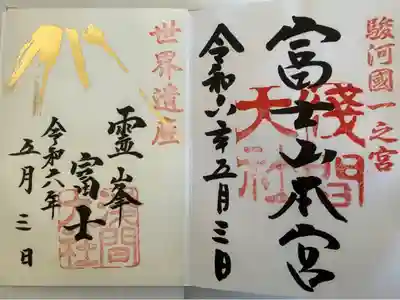 駿河國一之宮
富士山本宮
浅間大社
令和六年五月三日
世界遺産
霊峰
富士
令和六年
五月三日
浅間大社